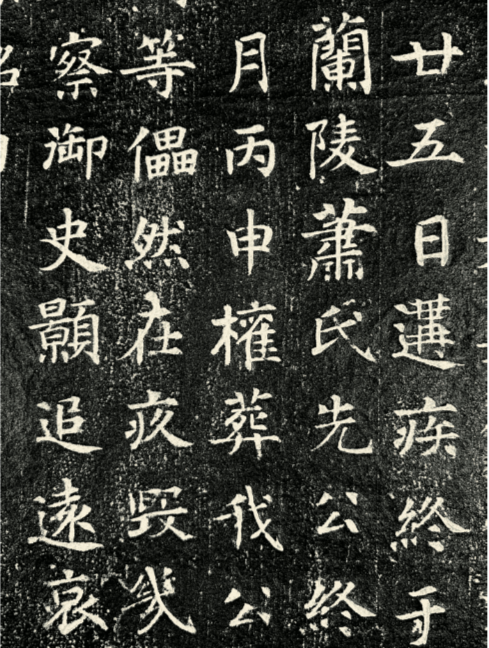 廿五日遘疾終于
蘭陵蕭氏先公終
月丙申權葬我公
等儡然在疚毀幾
察御史顥追遠哀